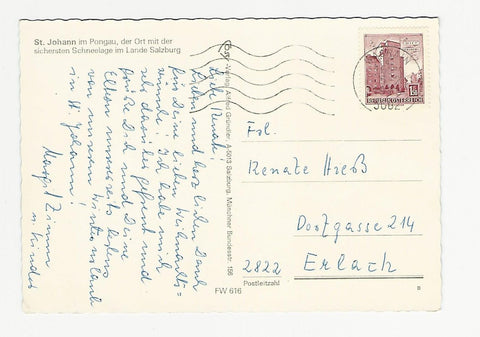 St. Johann im Pongau, der Ort mit der
sichersten Schneelage im Lande Salzburg
Liebe Renate!
Lieben und herzlichen Dank
für Deine lieben Weihnachts=
wünsche! Ich habe mich
sehr darüber gefreut und
grüße Dich und Deine
Eltern unsererseits bestens
von unserem Winterurlaub
in St. Johann!
Margit Zimm
u. Kinder
Verlag Alfred Gründler, A-5013 Salzburg, Münchner Bundesstr. 156
FW 616
REPUBLIK ÖSTERREICH
Frl.
Renate Hreß
Dorfgasse 214
2822 Erlach
Postleitzahl